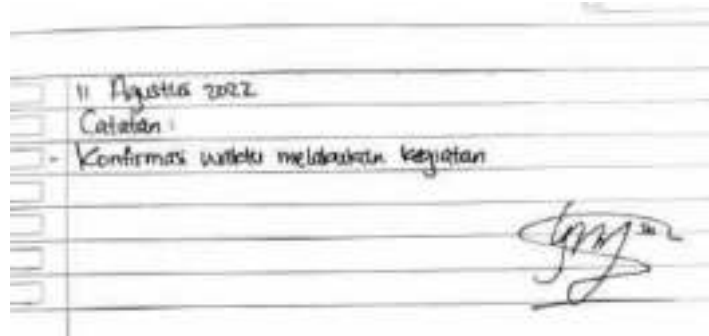 11 Agustus 2022
Catatan :
- Konfirmasi waktu melakukan kegiatan